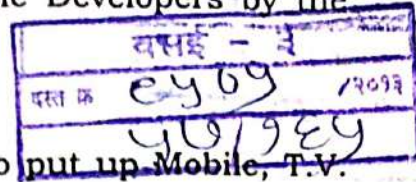 Developers by the
वसई - ३
दस्त क्र ९५७१ /२०१३
५७/१६५
put up Mobile, T.V.